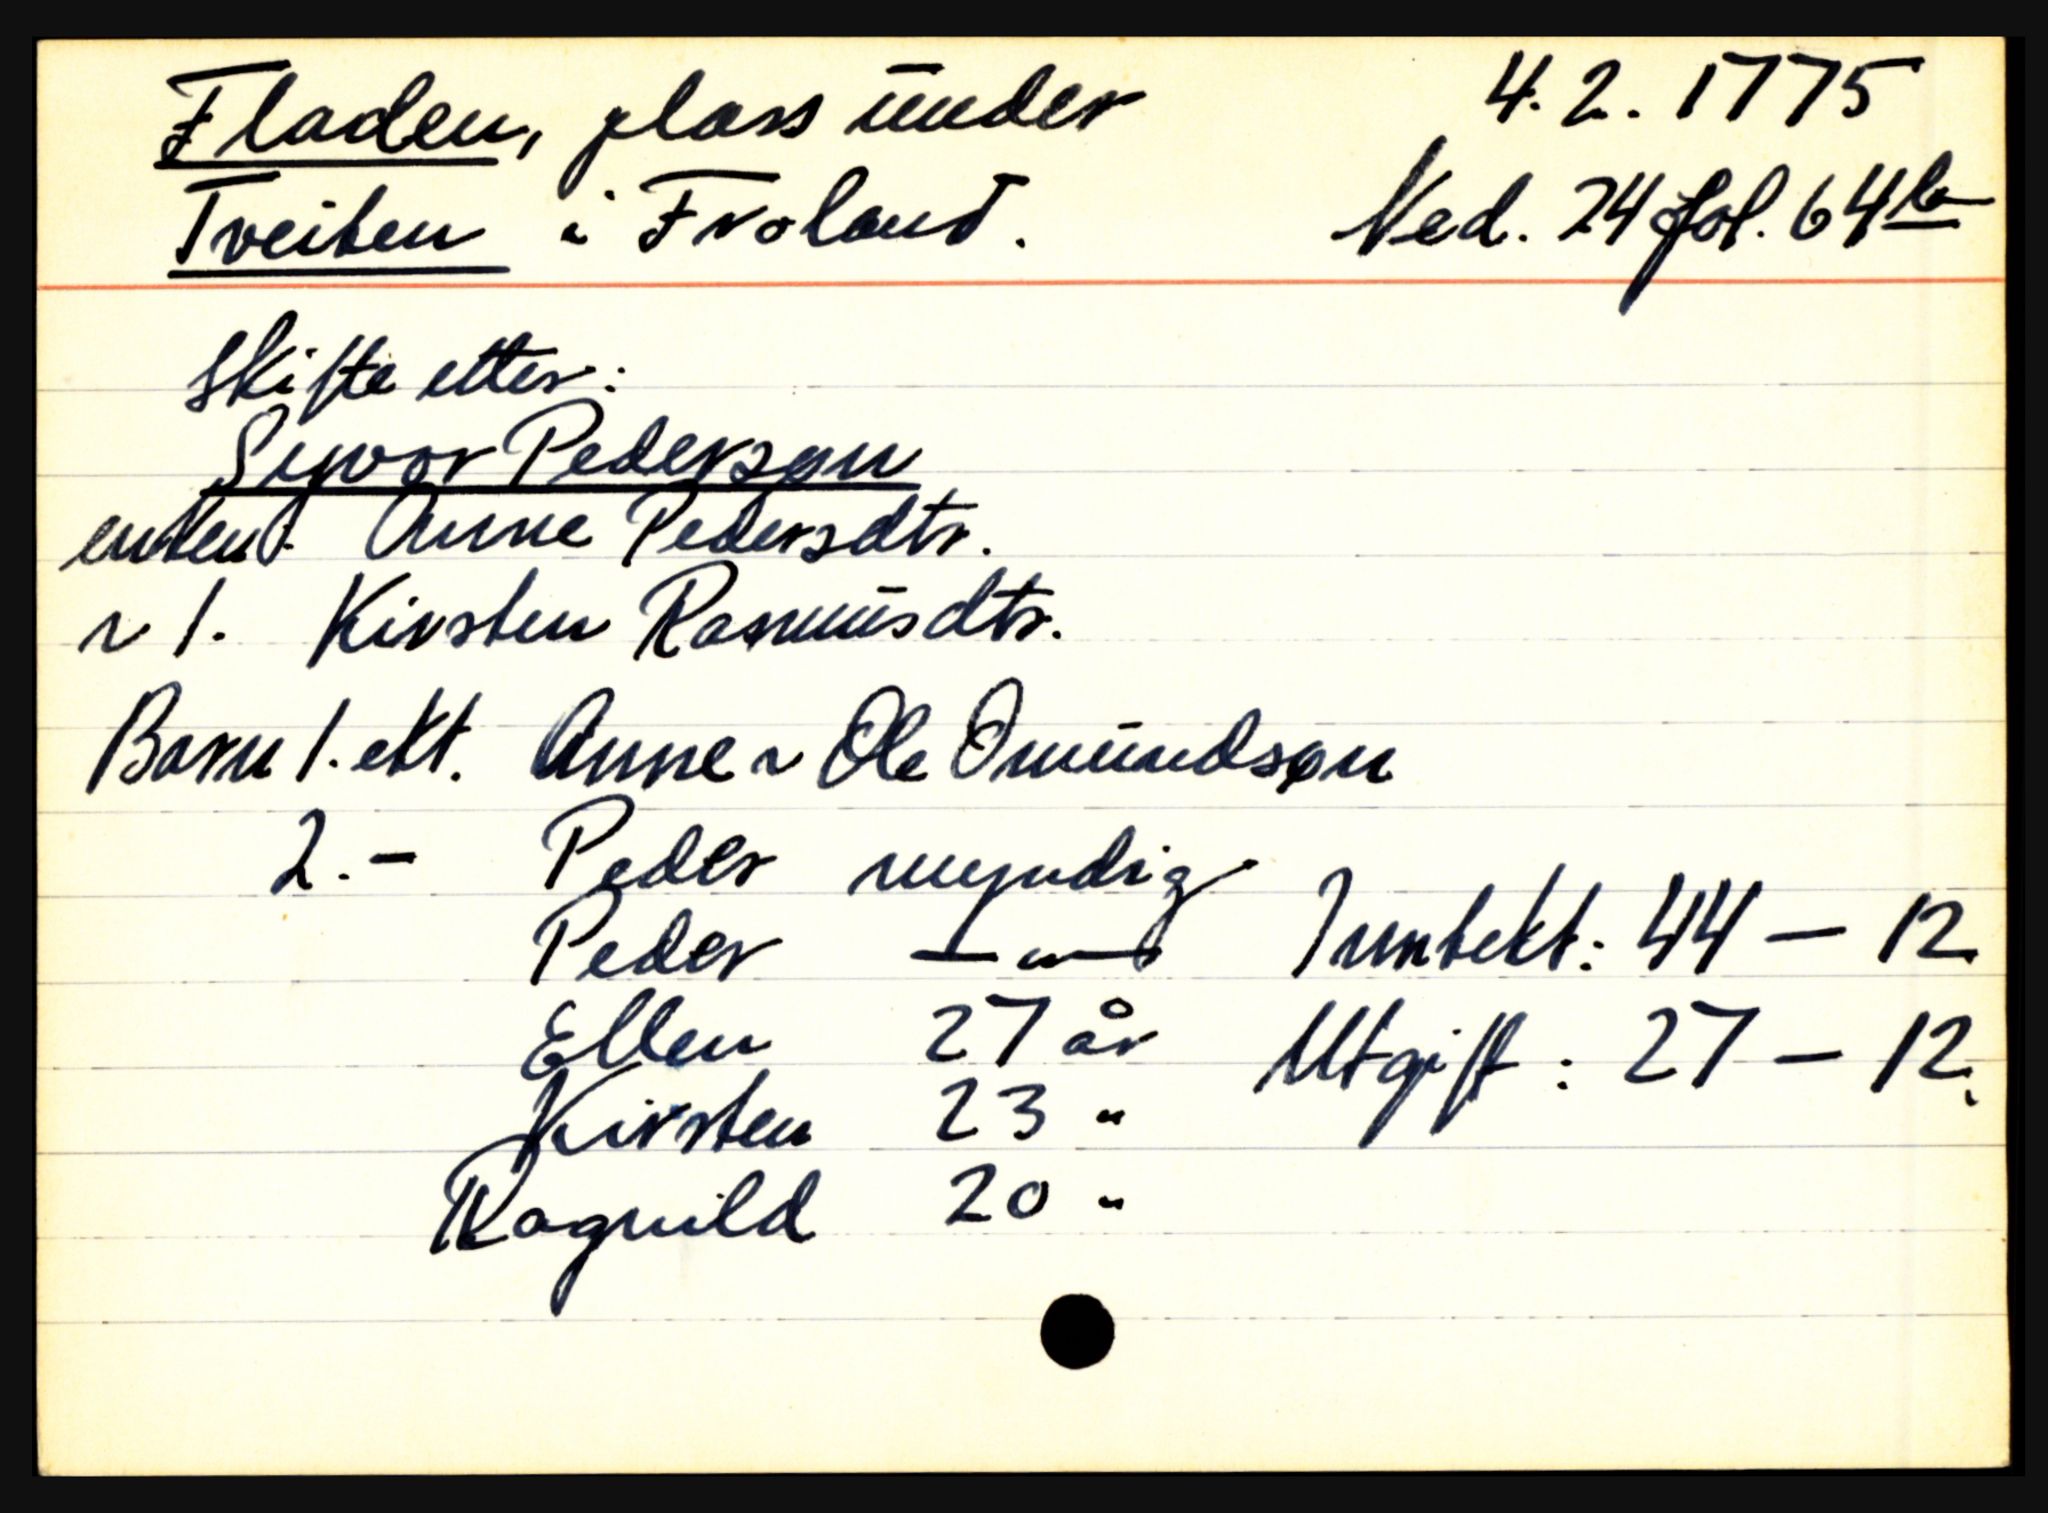 Fladen, plass under
4.2.1775
Tveiten i Froland.
Ned. 24 fol. 64b
Skifte etter:
Syvor Pedersøn
enken: Anne Pedersdtr.
~ 1. Kirsten Rasmusdtr.
Barn 1. ekt. Anne ~ Ole Omundsøn
2. - Peder myndig
Peder —"—
Inntekt: 44 — 12
Ellen 27 år
Utgift: 27 — 12.
Kirsten 23 "
Ragnild 20 "